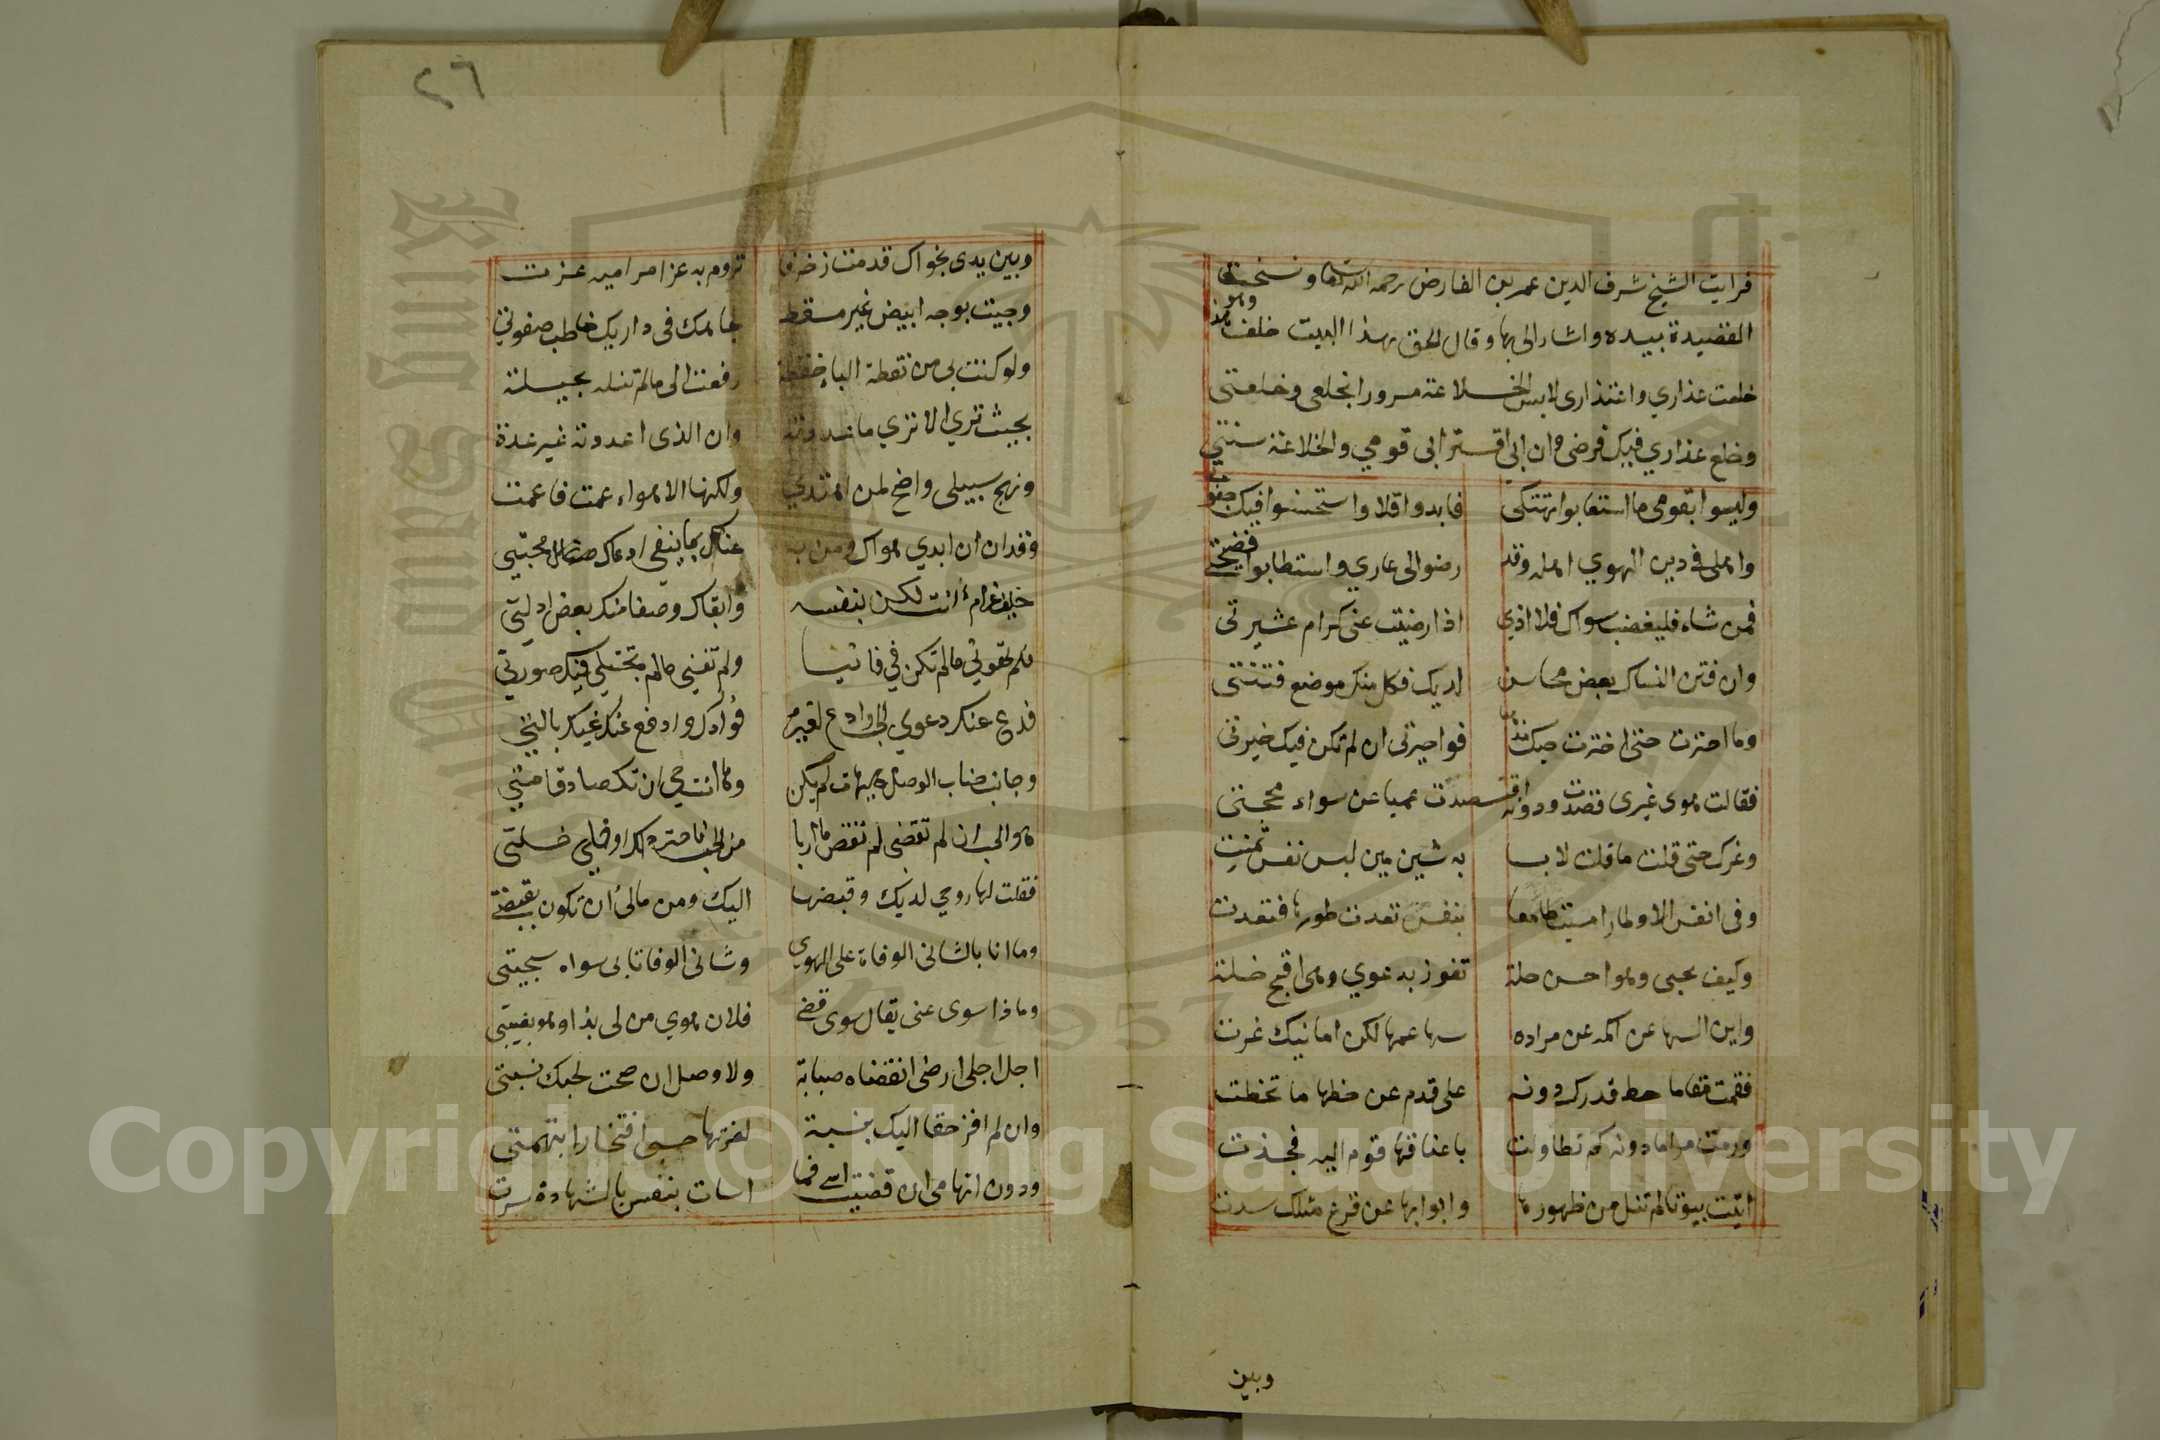 فرايت الشيخ شرف الدين عمر بن الفارض رحمه الله تعالى ونسخت
القصيدة بيده واشار الى بها وقال الحق بهذا البيت خلف وهو هذا
خلعت عذاري واعتذاري لابس الخلاعة مسرورا بخلعي وخلعتي
وخلع عذاري فيك فرضي وان ابى اقترابي قومي والخلاعة سنتي
وليسوا بقومي ما استعابوا تهتكي فابدوا قلا واستحسنوا فيك جفوتي
واهلي في دين الهوي اهله وقد رضوا لى عاري واستطابوا فضيحتي
فمن شاء فليغضب سواك فلا اذي اذا رضيت عني كرام عشيرتي
وان فتن النساك بعض محاسن لديك فكل منك موضع فتنتي
وما احترت حتى اخترت حبك مذهبا فواحيرتي ان لم تكن فيك خيرتي
فقالت هوى غيرى قصدت ودونه اقتصدت عميا عن سواء محجتي
وغرك حتى قلت ما قلت لابسا به شين مين لبس نفس تمنت
وفى انفس الاوطار امسيت طامعا بنفس تعدت طورها فتعدت
وكيف بحبي وهو احسن خلة تفوز بدعوي وهى اقبح خلة
واين السها عن اكمه عن مراده سها عمها لكن امانيك غرت
فقمت مقاما حط قدرك دونه على قدم عن حظها ما تخطت
ورمت مراما دونه كم تطاولت باعناقها قوم اليه فجذت
اتيت بيوتا لم تنل من ظهورها وابوابها عن قرع مثلك سدت
وبين
٢٦
وبين يدى نجواك قدمت زخرفا تروم به عزا مراميه عزت
وجيت بوجه ابيض غير مسقط لجاهك فى داريك خاطب صفوتي
ولو كنت بي من نقطة الباء خفضة رفعت الى ما لم تنله بحيلة
بحيث تري ان لا تري ما عددته وان الذى اعددته غير عدة
ونهج سبيلي واضح لمن اهتدي ولكنها الاهواء عمت فاعمت
وقد ان ان ابدي هواك ومن به عناك بما ينفي ادعاك محبتي
حليف غرام انت لكن بنفسه وابقاك وصفا منك بعض ادلتي
فلم تهوني ما لم تكن في فانيا ولم تفني ما لم تجتلي فيك صورتي
فدع عنك دعوي الحب وادع لغيره فؤادك وادفع عنك غيك بالتي
وجانب جناب الوصل هيهات لم يكن وها انت حي ان تكن صادقا مت
هو الحب ان لم تقض لم تقض ماربا من الحب فاختر ذاك او خلي خلتي
فقلت لها روحي لديك وقبضها اليك ومن مالي ان تكون بقبضتي
وما انا بالشاني الوفاة على الهوي وشاني الوفا تابى سواه سجيتي
وماذا سوى عنى يقال سوى قضى فلان هوي من لي بذا وهو بغيتي
اجل اجلي ارضى انقضاه صبابة ولا وصل ان صحت لحبك نسبتي
وان لم افز حقا اليك بنسبة لعزتها حسبي افتخارا بتهمتي
ودون اتهامي ان قضيت اسى فما اسات بنفس بالشهادة سرت
Copyright © King Saud University
King Saud University
1957